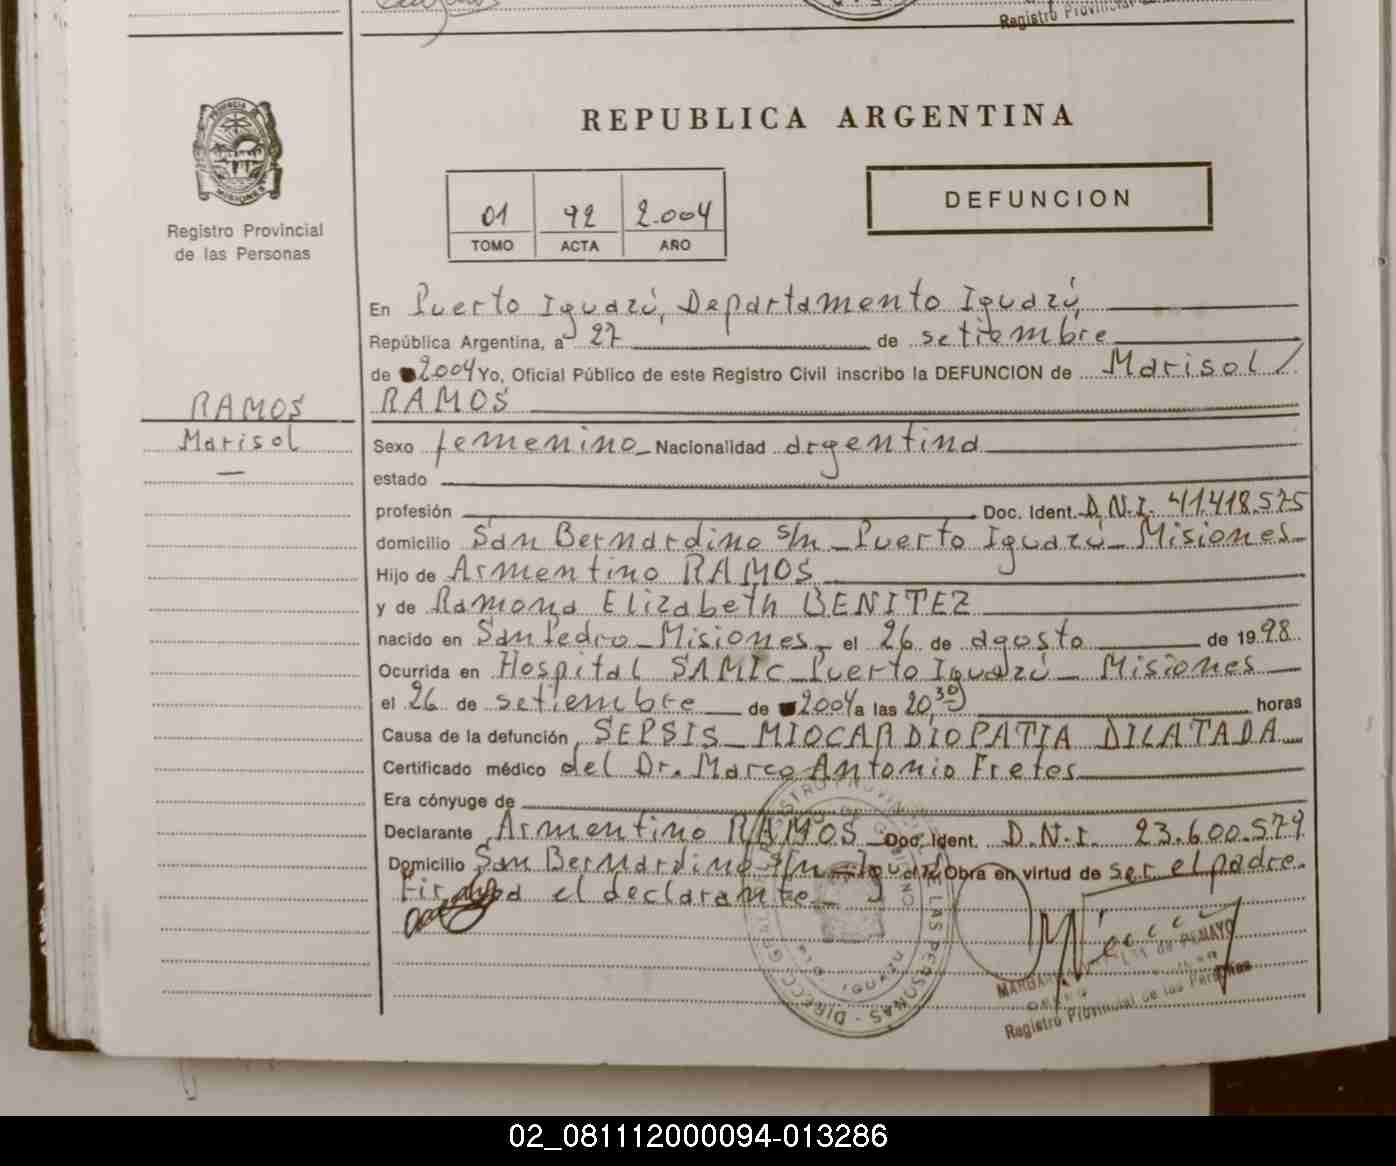 Registro Provincial
PROVINCIA
MISIONES
Registro Provincial
de las Personas
RAMOS
Marisol
REPUBLICA ARGENTINA
01 92 2.004
TOMO ACTA AÑO
DEFUNCION
En Puerto Iguazú, Departamento Iguazú,
República Argentina, a 27 de setiembre
de 2004 Yo, Oficial Público de este Registro Civil inscribo la DEFUNCION de Marisol /
RAMOS
Sexo femenino Nacionalidad argentina
estado
profesión Doc. Ident. D.N.I. 41.418.575
domicilio San Bernardino s/n - Puerto Iguazú - Misiones -
Hijo de Armentino RAMOS
y de Ramona Elizabeth BENITEZ
nacido en San Pedro - Misiones, el 26 de agosto de 1998.
Ocurrida en Hospital SAMIC - Puerto Iguazú - Misiones
el 26 de setiembre de 2004 a las 20,30 horas
Causa de la defunción SEPSIS - MIOCARDIOPATIA DILATADA
Certificado médico del Dr. Marco Antonio Fretes
Era cónyuge de
Declarante Armentino RAMOS Doc. Ident. D.N.I. 23.600.529
Domicilio San Bernardino s/n - Iguazú Obra en virtud de ser el padre.
Firma el declarante -
REGISTRO PROVINCIAL DE LAS PERSONAS - DIRECCION GENERAL
IGUAZU
Registro Provincial de las Personas
02_081112000094-013286